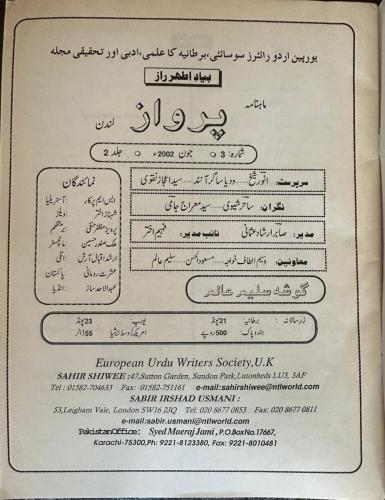 یورپین اردو رائٹرز سوسائٹی، برطانیہ کا علمی، ادبی اور تحقیقی مجلہ
بیاد اطہر راز
ماہنامہ پرواز لندن
شمارہ: 3 جون 2002ء جلد 2
سرپرست: انور شیخ ..... ودیا ساگر آنند ..... سید اعجاز نقوی
نگراں: ساحر شیوی ..... سید معراج جامی
مدیر: صابر ارشاد عثمانی نائب مدیر: فہیم اختر
معاونین: وسیم الطاف خواجہ ..... مسعود الحسن ..... سلیم عالم
نمائندگان
ایس ایم پرکار : آسٹریلیا
شہناز اختر : ویلز
پرویز مظفر : برمنگھم
ملک صفدر حسین : مانچسٹر
ارشد اقبال آرش : اٹلی
عشرت رومانی : پاکستان
عبدالاحد ساز : انڈیا
گوشہ سلیم عالم
زر سالانہ: برطانیہ: 21 پونڈ یورپ: 23 پونڈ
ہندو پاک: 500 روپے امریکہ/ مڈل ایشیا: 55 ڈالر
European Urdu Writers Society,U.K
SAHIR SHIWEE :47,Sutton Garden, Sundon Park,Lutonbeds LU3, 3AF
Tel : 01582-704633 Fax: 01582-751161 e-mail:sahirshiwee@ntlworld.com
SABIR IRSHAD USMANI :
53,Leigham Vale, London SW16 2JQ Tel: 020 8677 0853 Fax: 020 8677 0811
e-mail:sabir.usmani@ntlworld.com
PakistanOffice: Syed Maeraj Jami , P.O.Box No.17667,
Karachi-75300,Ph: 9221-8123380, Fax: 9221-8010481